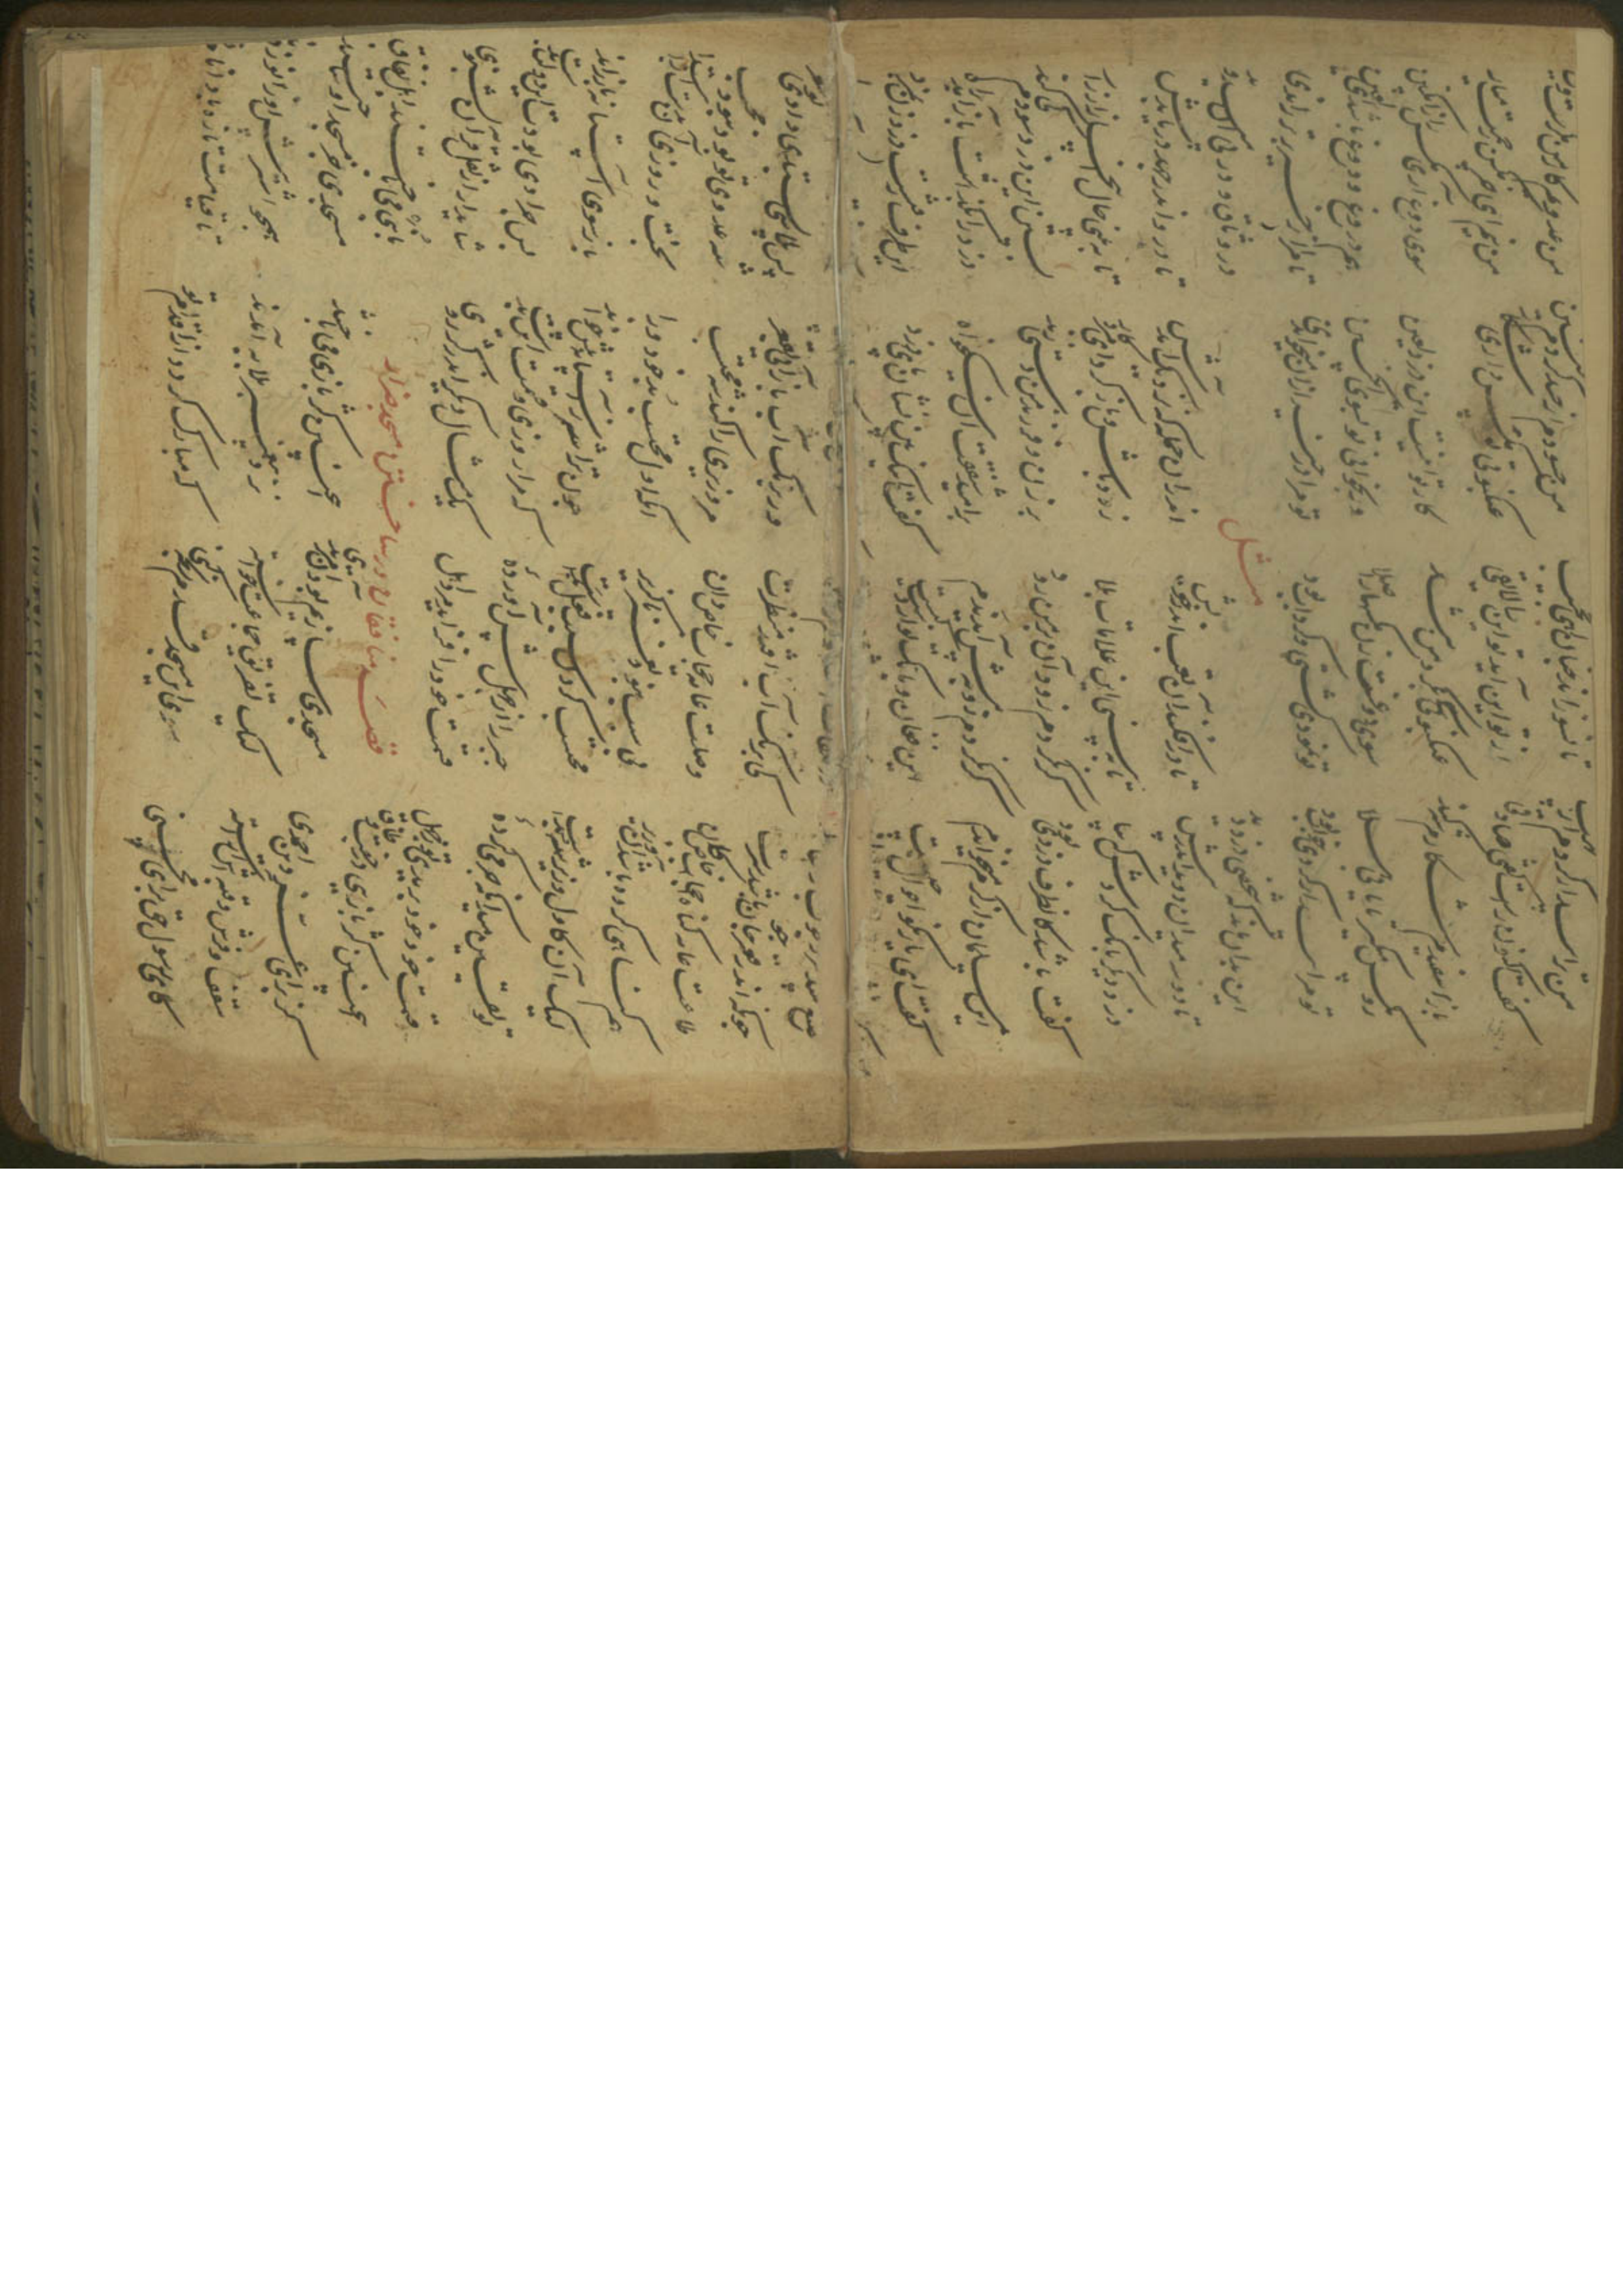 من ترا بیدار کردم از نهیب تا نسوزاند چنان آهی حجیب من حسودم از حسد کردم چنین من عدوم کار من مکرست و کین
گفت اکنون راست گفتی صادقی از تو این آید تو این را لایقی عنکبوتی تو مگس داری شکار من نیم ای سگ مگس زحمت میار
باز اسپیدم شکارم شه کند عنکبوتی کی بگرد من تند کار تو اینست ای دزد لعین سوی دوغ آری مگس را ز انگبین
رو مگس میگیر تا تانی هلا سوی دوغی زن مگسها را صلا ور بخوانی تو بسوی انگبین هم دروغ و دوغ باشد آن یقین
تو مرا بیدار کردی خواب بود تو نمودی کشتی آن گرداب بود تو مرا در خیر زان میخواندی تا مرا از خیر بهتر راندی
مثل
این بدان ماند که شخصی دزد دید در وثاق و در پی او میدوید
تا دو سه میدان دوید اندر پیش تا در افکند آن تعب اندر خویش اندران حمله که نزدیک آمدش تا بدو اندر جهد دریابدش
دزد دیگر بانگ کردش که بیا تا ببینی این علامات بلا زود باش و باز گرد ای مرد کار تا ببینی حال اینجا زار زار
گفت باشد کان طرف دزدی بود گر نگردم زود آن بر من رود بر زن و فرزند من دستی زند بستن این دزد سودم کی کند
این مسلمان از کرم میخواندم گر نگردم زود پیش آید ندم بر امید شفقت آن نیکخواه دزد را بگذاشت باز آمد براه
گفت ای یار نکو احوال چیست این فغان و بانگ تو از دست کیست گفت اینک بین نشان پای دزد این طرف رفتست دزد زن بمزد
چونکه اندر قعر جو باشد سرت کی برنگ آب افتد منظرت ور برنگ آب باز آیی ز قعر پس پلاسی بستدی دادی تو شعر
طاعت عامه گناه خاصگان وصلت عامه حجاب خاص دان مر وزیری را کند شه محتسب شه عدوی او بود نبود محب
هم گناهی کرده باشد آن وزیر بی سبب نبود تغیر ناگزیر آنک ز اول محتسب بد خود ورا بخت و روزی آن بدست از ابتدا
لیک آن کاول وزیر شه بدست محتسب کردن سبب فعل بدست چون ترا شه ز آستانه پیش خواند باز سوی آستانه باز راند
تو یقین میدان که جرمی کرده جبر را از جهل پیش آورده که مرا روزی و قسمت این بدست پس چرا دی بودت آن دولت بدست
قسمت خود خود بریدی تو ز جهل قسمت خود را فزاید مرد اهل یک مثال دیگر اندر کژروی شاید ار از نقل قرآن بشنوی
قصه منافقان و ساختن مسجد ضرار
این چنین کژ بازیی در جفت و طاق با نبی میباختند اهل نفاق
کز برای عز دین احمدی مسجدی سازیم و بود آن مرتدی این چنین کژ بازیی میباختند مسجدی جز مسجد او ساختند
سقف و فرش و قبه اش آراسته لیک تفریق جماعت خواسته نزد پیغمبر بلابه آمدند همچو اشتر پیش او زانو زدند
کای رسول حق برای محسنی سوی این مسجد قدم رنجه کنی که مبارک گردد از اقدام تو تا قیامت تازه بادا نام تو